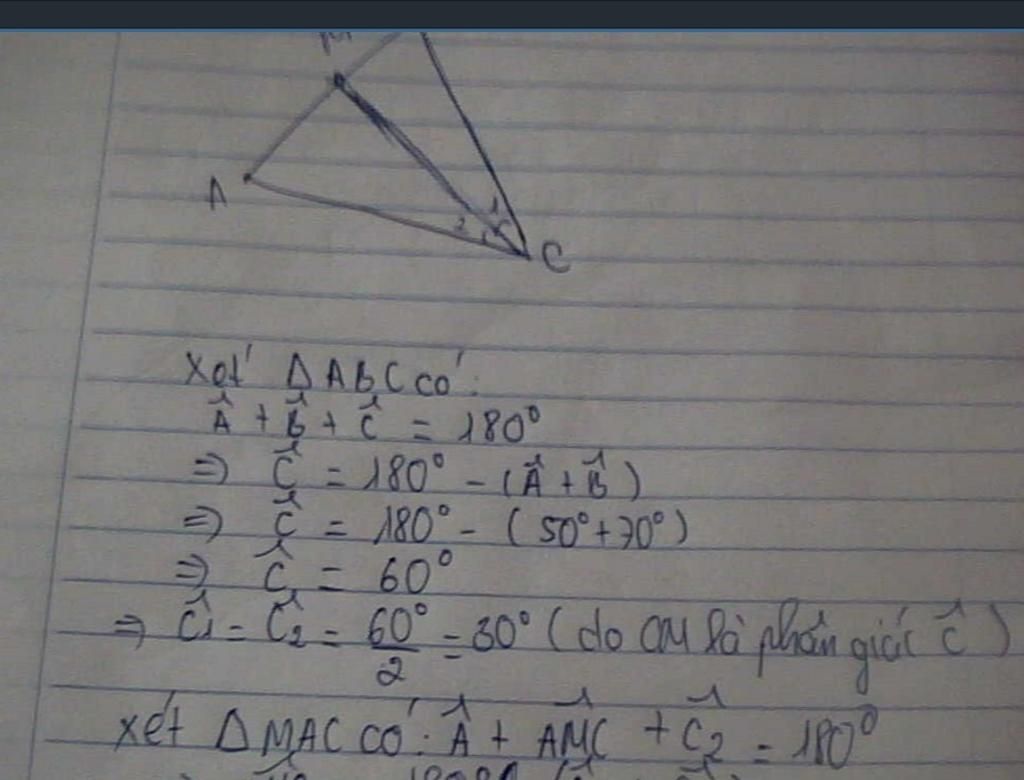 M
A
1
2
C
Xét ΔABC có:
Â + B̂ + Ĉ = 180°
=> Ĉ = 180° - (Â + B̂)
=> Ĉ = 180° - (50° + 70°)
=> Ĉ = 60°
=> Ĉ1 = Ĉ2 = 60°/2 = 30° (do CM là phân giác Ĉ)
xét ΔMAC có: Â + AM̂C + Ĉ2 = 180°